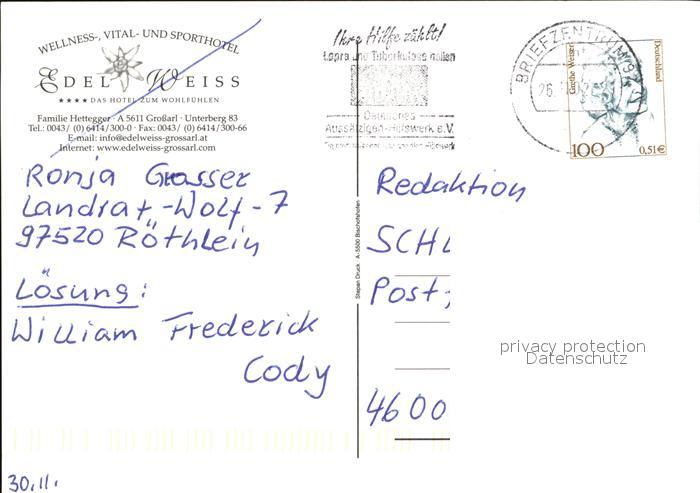 WELLNESS-, VITAL- UND SPORTHOTEL
EDELWEISS
★★★★ DAS HOTEL ZUM WOHLFÜHLEN
Familie Hettegger · A 5611 Großarl · Unterberg 83
Tel.: 0043/ (0) 6414/300-0 · Fax: 0043/ (0) 6414/300-66
E-mail: info@edelweiss-grossarl.at
Internet: www.edelweiss-grossarl.com
Ihre Hilfe zählt!
Lepra und Tuberkulose heilen
Deutsches
Aussätzigen-Hilfswerk e.V.
BRIEFZENTRUM 97
26.
Grethe Weiser
Deutschland
100 0,51€
Ronja Grasser
Landrat-Wolf-7
97520 Röthlein
Lösung:
William Frederick
Cody
30.11.
Stepan Druck A-5500 Bischofshofen
Redaktion
SCHL
Post
4600
privacy protection
Datenschutz